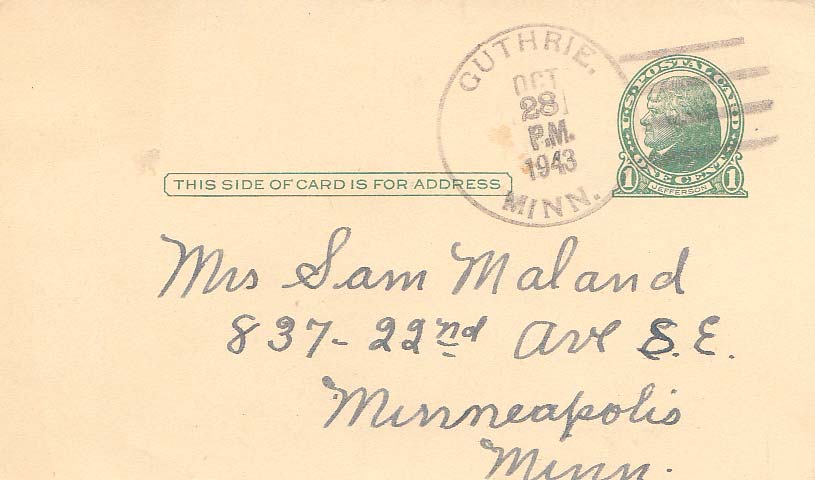 GUTHRIE.
OCT
28
P.M.
1943
MINN.
U.S. POSTAL CARD
ONE CENT
1 JEFFERSON 1
THIS SIDE OF CARD IS FOR ADDRESS
Mrs Sam Maland
837-22nd Ave S.E.
Minneapolis
Minn.